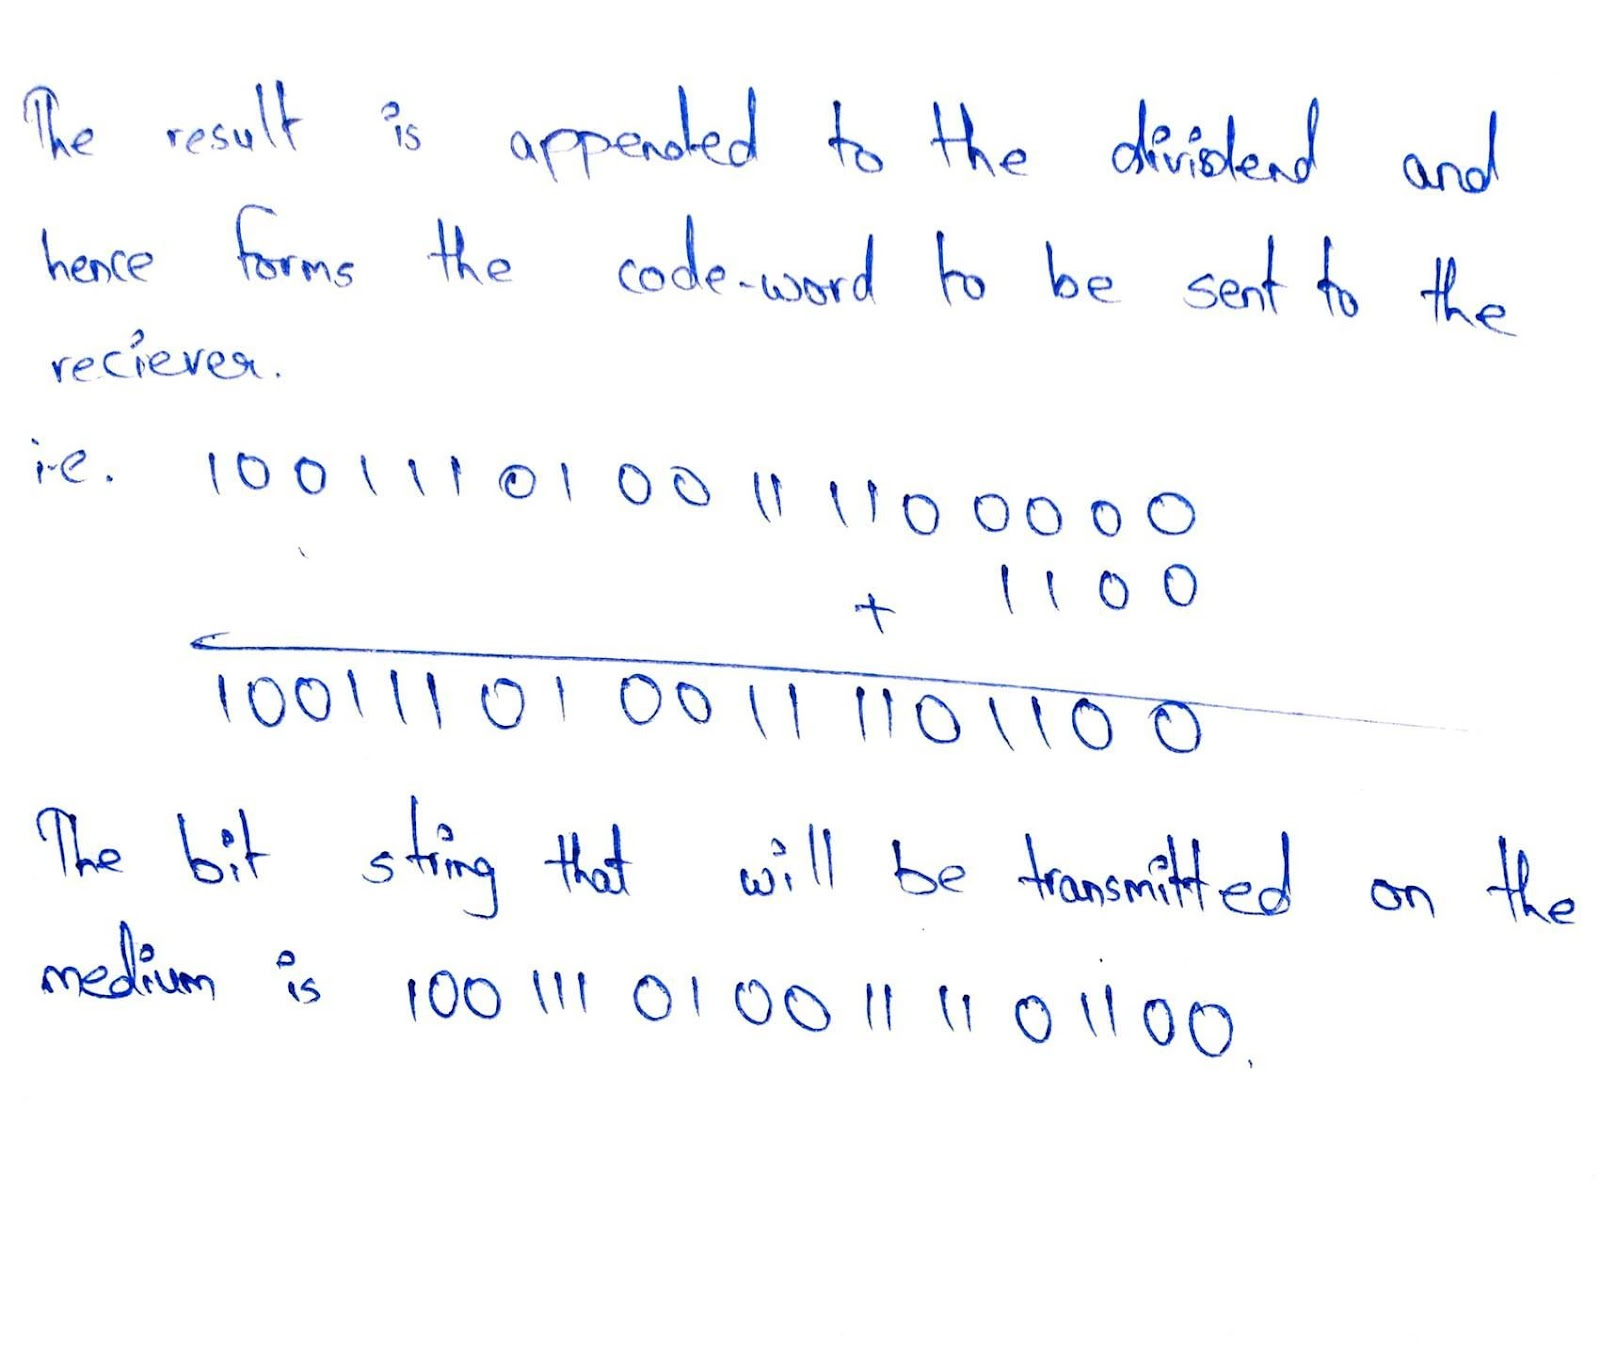 The result is appended to the dividend and
hence forms the code-word to be sent to the
reciever.
i.e. 1001110100111100000
+ 1100
1001110100111101100
The bit string that will be transmitted on the
medium is 1001110100111101100.